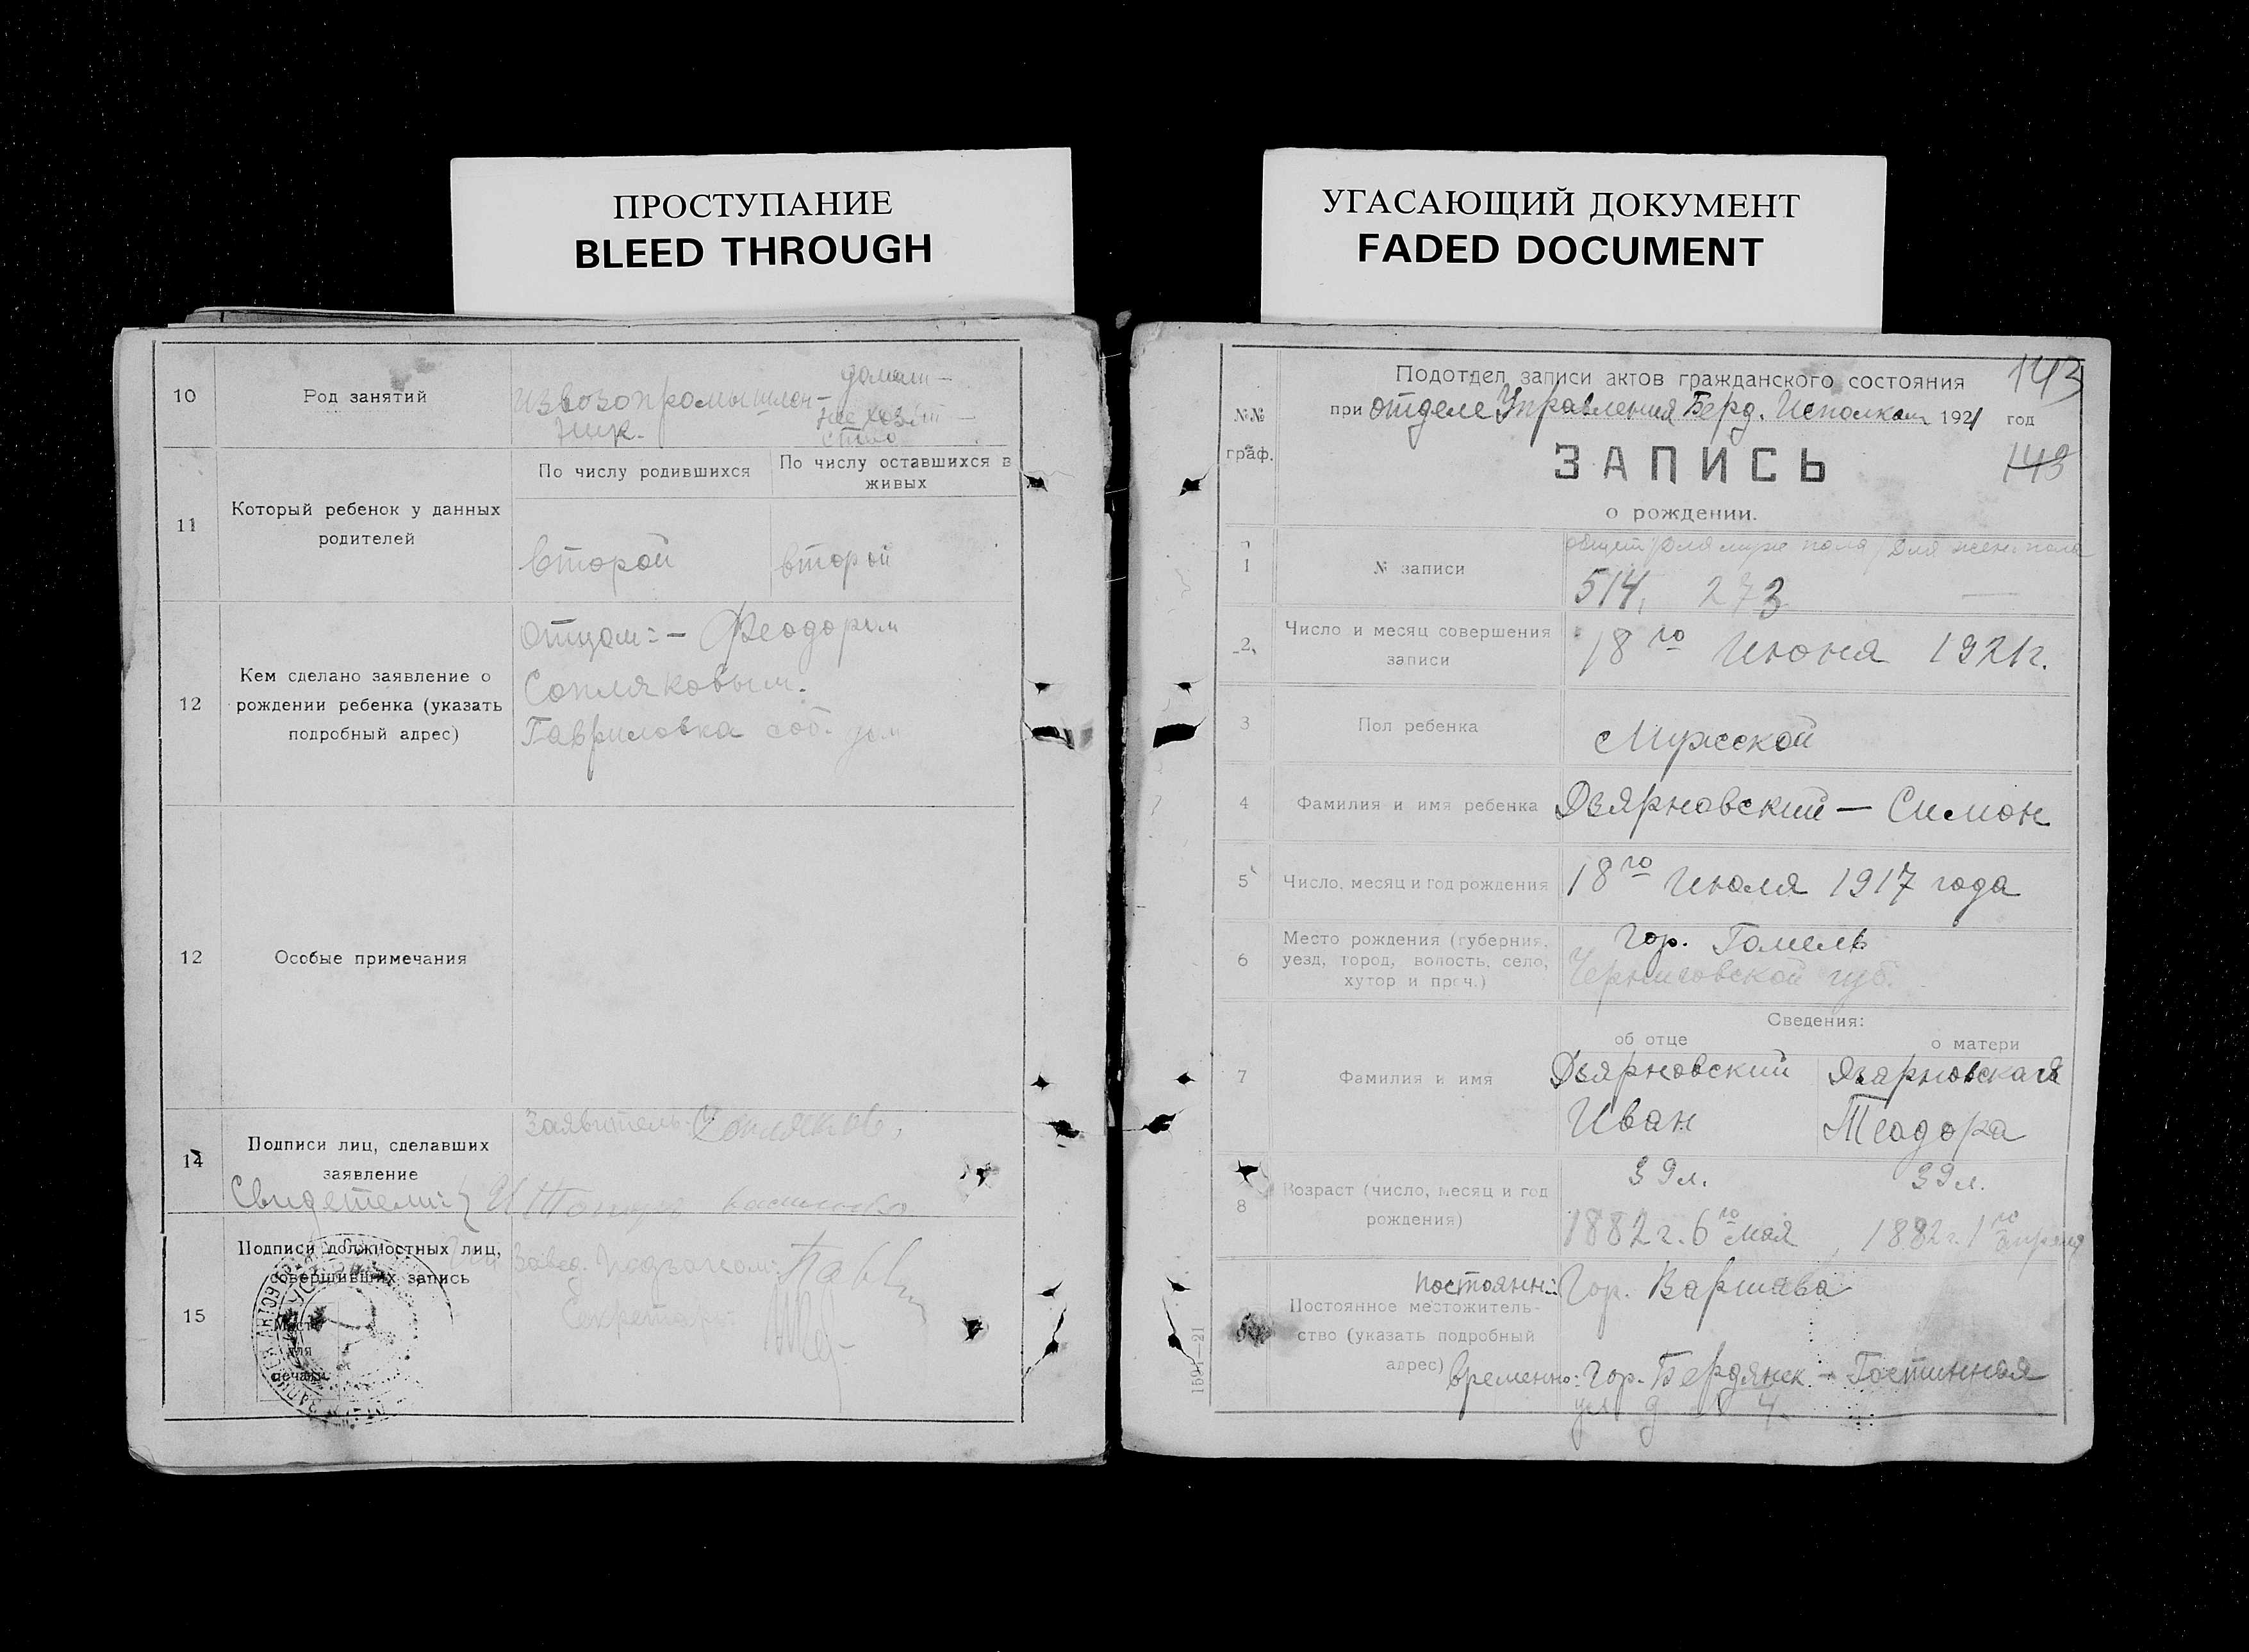 ПРОСТУПАНИЕ
BLEED THROUGH
УГАСАЮЩИЙ ДОКУМЕНТ
FADED DOCUMENT
10
Род занятий
извозопромышлен-
ник.
домаш-
нее хозяй-
ство
11
Который ребенок у данных
родителей
По числу родившихся
По числу оставшихся в
живых
второй
второй
12
Кем сделано заявление о
рождении ребенка (указать
подробный адрес)
Отцом:- Феодором
Сопляковым.
Гавриловка соб. дом
12
Особые примечания
14
Подписи лиц, сделавших
заявление
Заявитель
Свидетели:
15
Подписи должностных лиц,
совершивших запись
Место
для
печати
Завед. Подзагсом:
Секретарь
143
Подотдел записи актов гражданского состояния
№№
граф.
при отделе Управления Берд. Исполкома 1921 год
ЗАПИСЬ
143
о рождении.
1
№ записи
общий / для муж. пола / для жен. пола
514, 273 —
2
Число и месяц совершения
записи
18го Июня 1921г.
3
Пол ребенка
Мужской
4
Фамилия и имя ребенка
Дзярновский — Симон
5
Число, месяц и год рождения
18го Июля 1917 года
6
Место рождения (губерния,
уезд, город, волость, село,
хутор и проч.)
гор. Гомель
Черниговской губ.
Сведения:
об отце
о матери
7
Фамилия и имя
Дзярновский
Иван
Дзярновская
Теодора
8
Возраст (число, месяц и год
рождения)
39л.
1882 г. 6го мая
39л.
1882 г. 1го апреля
Постоянное местожитель-
ство (указать подробный
адрес)
постоянн: Гор. Варшава
временно: гор. Бердянск - Гостинная
ул д № 4.